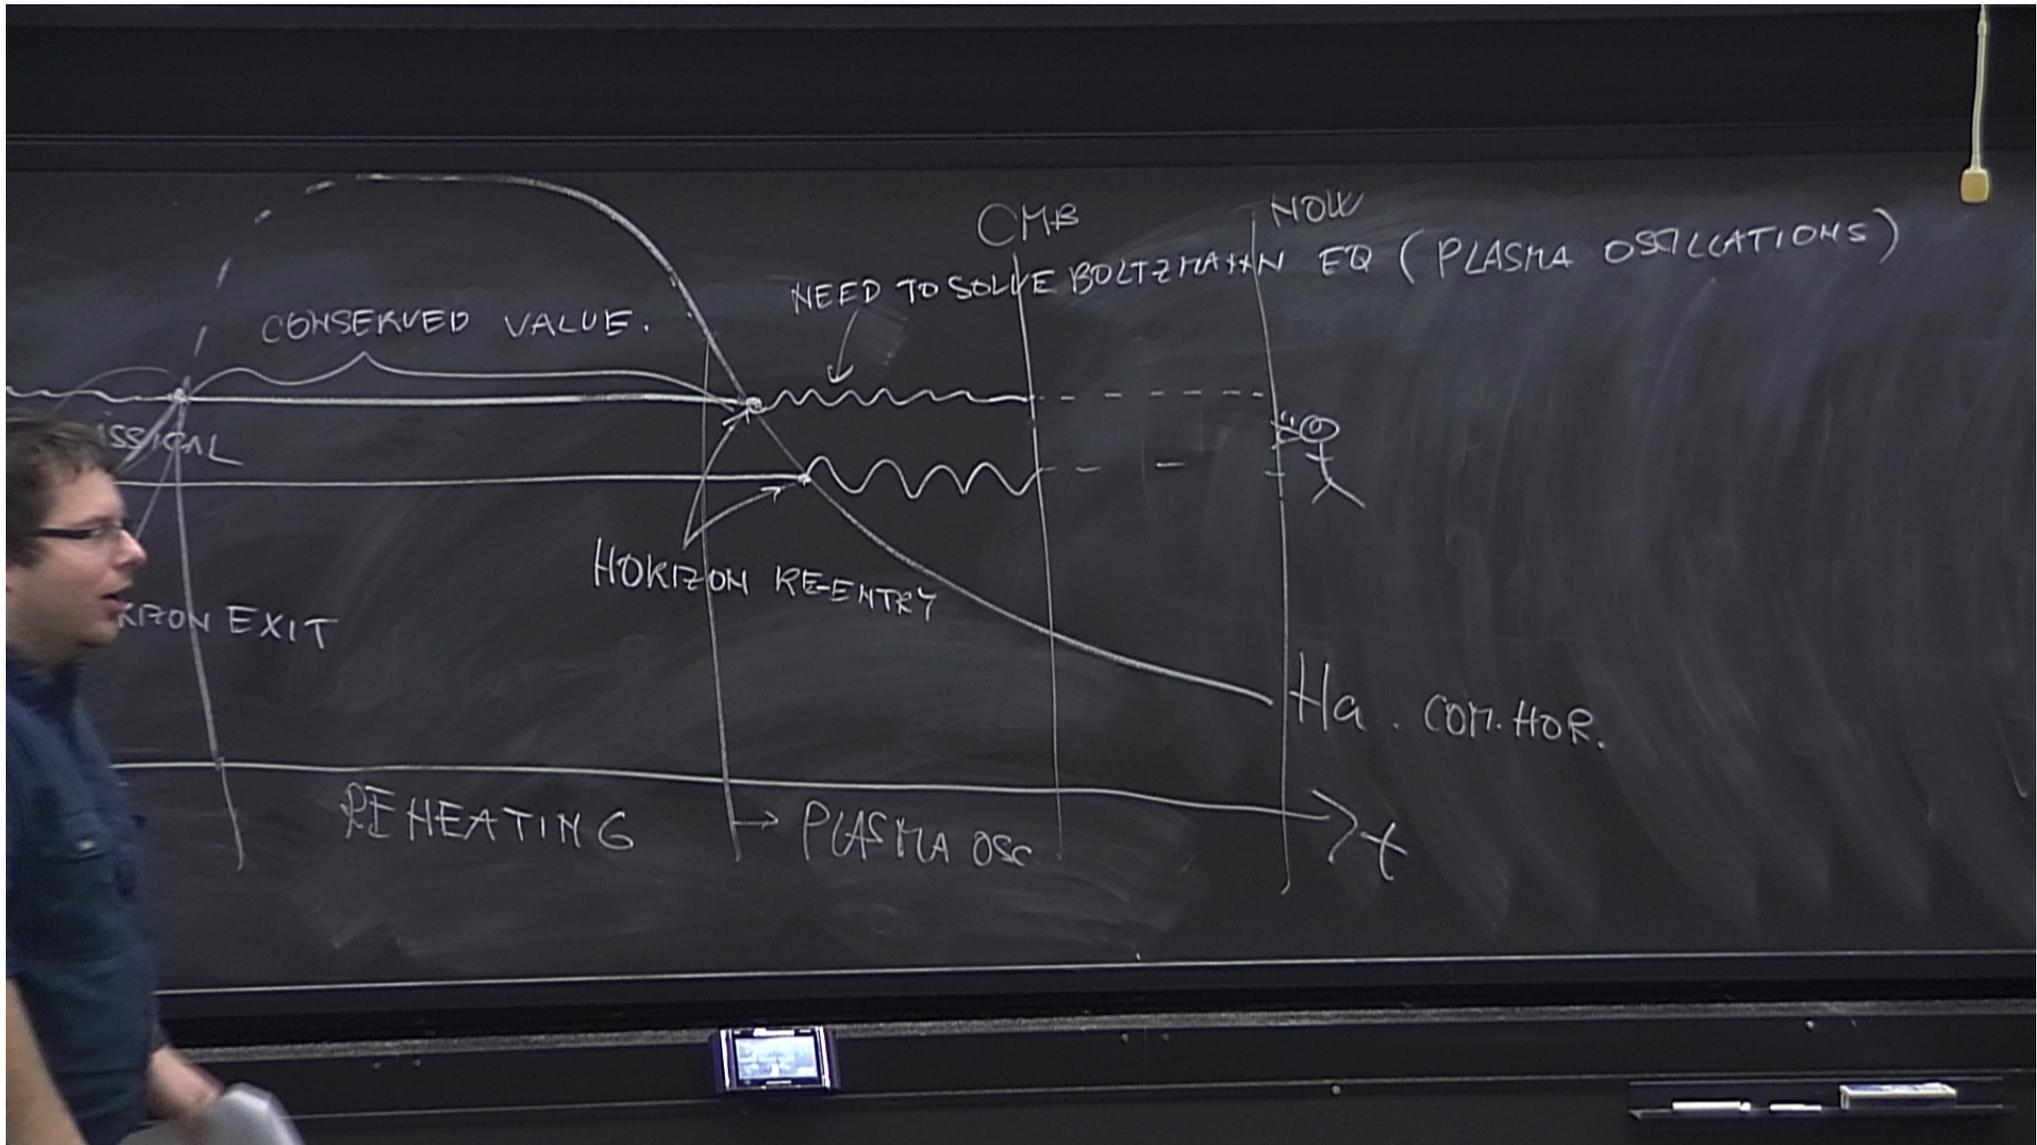 CMB
NOW
NEED TO SOLVE BOLTZMANN EQ (PLASMA OSSILLATIONS)
CONSERVED VALUE.
SSICAL
HORIZON RE-ENTRY
RIZON EXIT
Ha . COM. HOR.
REHEATING
→ PLASMA OSC
t